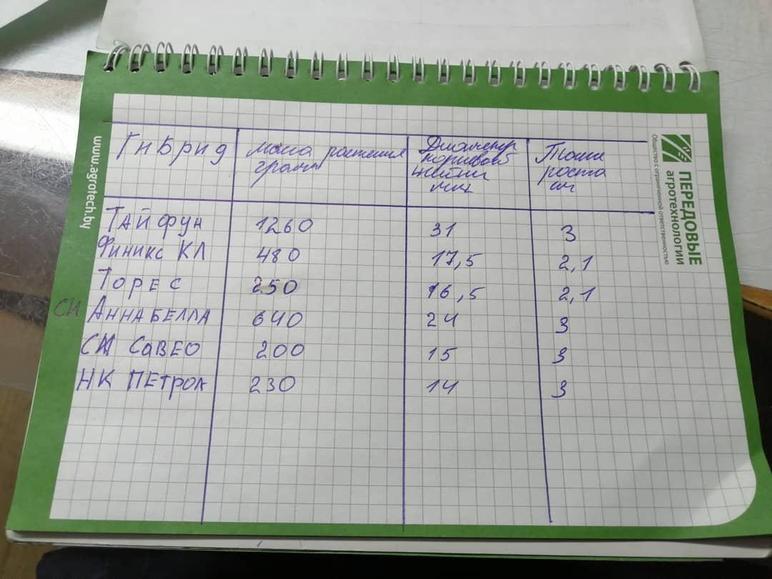 Гибрид масса растения грамм Диаметр корневой шейки мм Точки роста см
Тайфун 1260 31 3
Финикс КЛ 480 17,5 2,1
Торес 250 16,5 2,1
СИ Аннабелла 640 24 3
СИ Савео 200 15 3
НК Петрол 230 14 3
www.agrotech.by
ПЕРЕДОВЫЕ
агротехнологии
Общество с ограниченной ответственностью